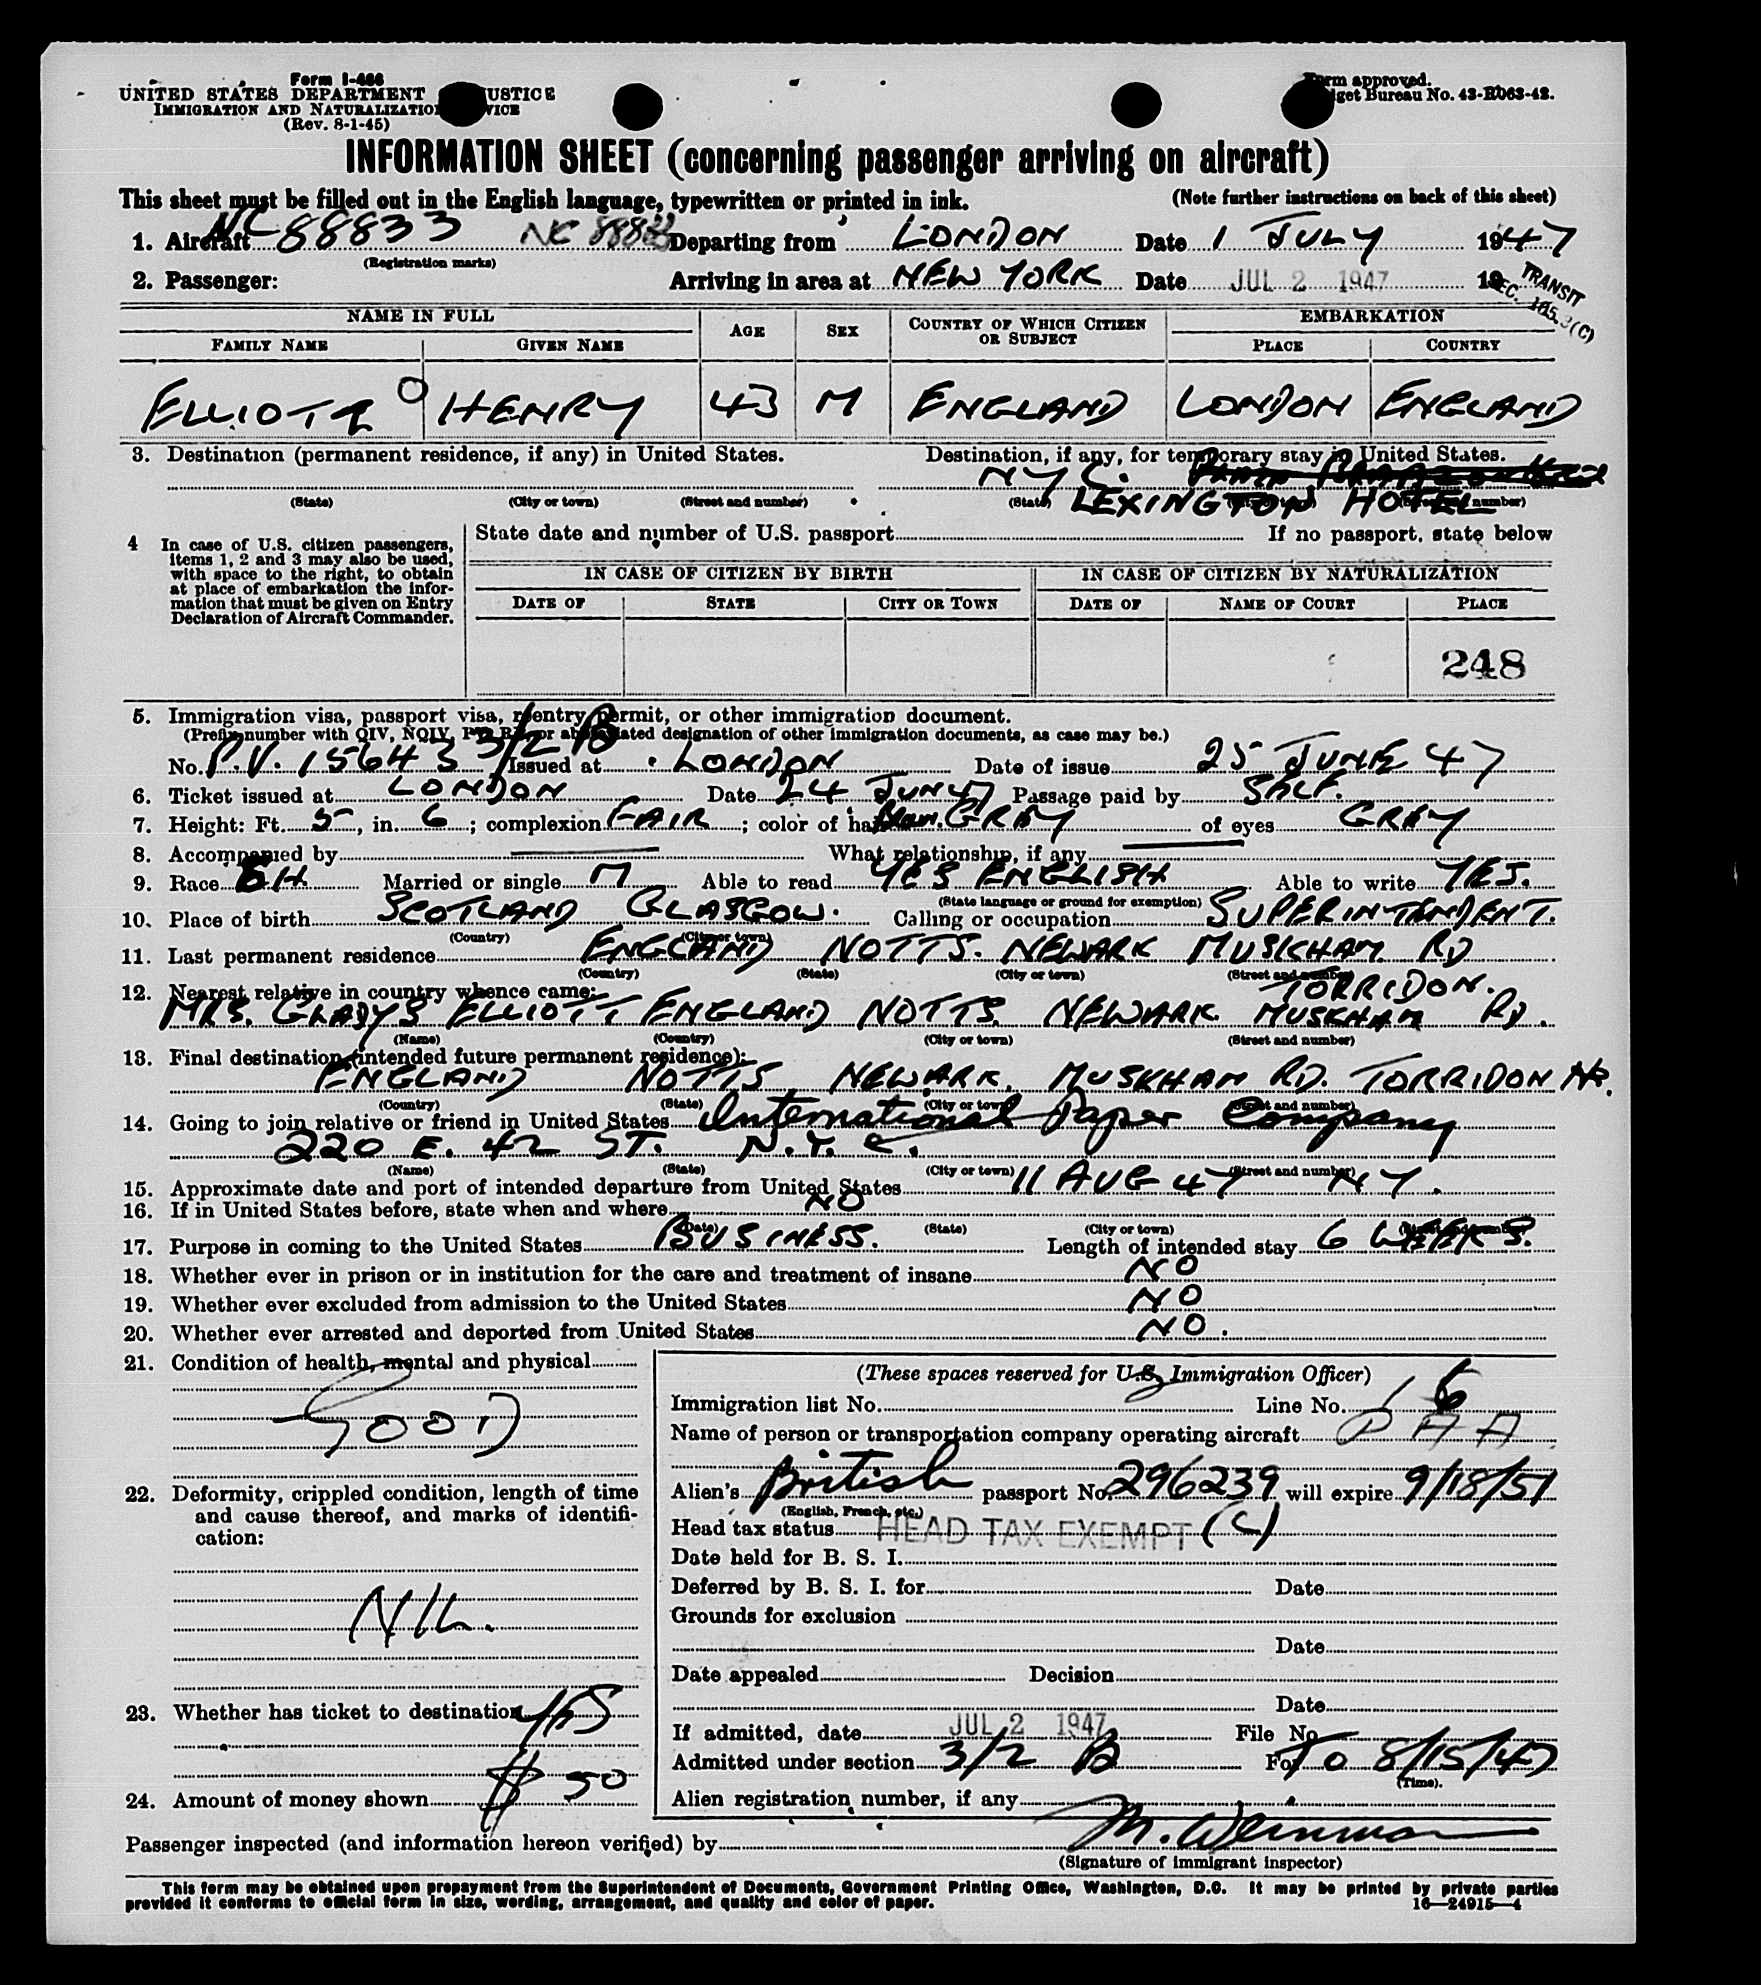 Form I-466
UNITED STATES DEPARTMENT JUSTICE
IMMIGRATION AND NATURALIZATION SERVICE
(Rev. 8-1-45)
Form approved.
Budget Bureau No. 43-R063-42.
INFORMATION SHEET (concerning passenger arriving on aircraft)
This sheet must be filled out in the English language, typewritten or printed in ink. (Note further instructions on back of this sheet)
1. Aircraft NC 88833 NC 88833 Departing from LONDON Date 1 JULY 1947
(Registration marks)
2. Passenger: Arriving in area at NEW YORK Date JUL 2 1947 19
TRANSIT
SEC. 165.3(C)
NAME IN FULL AGE SEX COUNTRY OF WHICH CITIZEN OR SUBJECT EMBARKATION
FAMILY NAME GIVEN NAME PLACE COUNTRY
ELLIOTT HENRY 43 M ENGLAND LONDON ENGLAND
3. Destination (permanent residence, if any) in United States. Destination, if any, for temporary stay in United States.
NYC.
LEXINGTON HOTEL
(State) (City or town) (Street and number) (State) (Street and number)
4 In case of U.S. citizen passengers, items 1, 2 and 3 may also be used, with space to the right, to obtain at place of embarkation the information that must be given on Entry Declaration of Aircraft Commander.
State date and number of U.S. passport If no passport, state below
IN CASE OF CITIZEN BY BIRTH IN CASE OF CITIZEN BY NATURALIZATION
DATE OF STATE CITY OR TOWN DATE OF NAME OF COURT PLACE
248
5. Immigration visa, passport visa, reentry permit, or other immigration document.
(Prefix number with QIV, NQIV, PV, RP, or abbreviated designation of other immigration documents, as case may be.)
No. P.V. 15643 3/2 B Issued at LONDON Date of issue 25 JUNE 47
6. Ticket issued at LONDON Date 24 JUN 47 Passage paid by SELF.
7. Height: Ft. 5, in. 6; complexion FAIR; color of hair GRAY of eyes GREY
8. Accompanied by — What relationship, if any —
9. Race Married or single M Able to read YES ENGLISH Able to write YES.
(State language or ground for exemption)
10. Place of birth SCOTLAND GLASGOW. Calling or occupation SUPERINTENDENT.
(Country) (City or town)
11. Last permanent residence ENGLAND NOTTS. NEWARK MUSKHAM RD
(Country) (State) (City or town) (Street and number)
TORRIDON.
12. Nearest relative in country whence came:
MRS. GLADYS ELLIOTT ENGLAND NOTTS. NEWARK MUSKHAM RD.
(Name) (Country) (City or town) (Street and number)
13. Final destination (intended future permanent residence):
ENGLAND NOTTS NEWARK. MUSKHAM RD. TORRIDON
(Country) (State) (City or town) (Street and number)
14. Going to join relative or friend in United States International Paper Company
220 E. 42 ST. N.Y.C.
(Name) (State) (City or town) (Street and number)
15. Approximate date and port of intended departure from United States 11 AUG 47 NY.
16. If in United States before, state when and where NO
(Date) (State) (City or town) (Street and number)
17. Purpose in coming to the United States BUSINESS. Length of intended stay 6 WEEKS.
18. Whether ever in prison or in institution for the care and treatment of insane NO
19. Whether ever excluded from admission to the United States NO
20. Whether ever arrested and deported from United States NO.
21. Condition of health, mental and physical
GOOD
22. Deformity, crippled condition, length of time and cause thereof, and marks of identification:
NIL.
23. Whether has ticket to destination YES
24. Amount of money shown $ 50
(These spaces reserved for U.S. Immigration Officer)
Immigration list No. Line No. 6
Name of person or transportation company operating aircraft P A A
Alien's British passport No. 296239 will expire 9/18/51
(English, French, etc.)
Head tax status HEAD TAX EXEMPT (C)
Date held for B. S. I.
Deferred by B. S. I. for Date
Grounds for exclusion
Date
Date appealed Decision
Date
If admitted, date JUL 2 1947 File No.
Admitted under section 3/2 B For To 8/15/47
(Time).
Alien registration number, if any
Passenger inspected (and information hereon verified) by M. Weinman
(Signature of immigrant inspector)
This form may be obtained upon prepayment from the Superintendent of Documents, Government Printing Office, Washington, D.C. It may be printed by private parties
provided it conforms to official form in size, wording, arrangement, and quality and color of paper. 16—24915—4